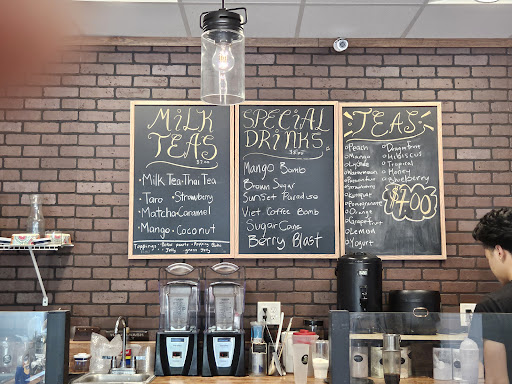 MiLK
TEAS
• Milk Tea • Thai Tea
• Taro • Strawberry
• Matcha • Caramel
• Mango • Coconut
Toppings:
Jelly
SPECiAL
DRiNKS
Mango Bomb
Brown Sugar
Sunset Paradise
Viet Coffee Bomb
Sugar Cane
Berry Blast
TEAS
Peach
Mango
Lychee
Watermelon
Passionfruit
Strawberry
Kumquat
Pomegranate
Orange
Grapefruit
Lemon
Yogurt
Dragonfruit
Hibiscus
Tropical
Honey
Blueberry
$4.00